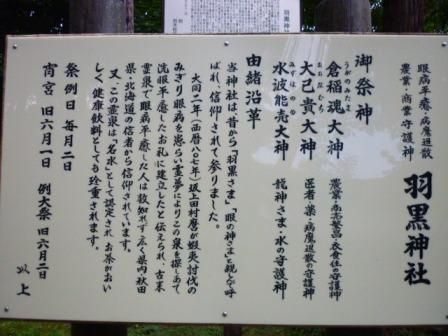 羽黒神社
眼病平癒・病魔退散
農業・商業守護神
羽黒神社
御祭神
倉稲魂大神
うがのみたま
農業・商売繁昌・衣食住の守護神
大己貴大神
おおなむち
医者・薬・病魔退散の守護神
水波能売大神
みずはのめ
龍神さま・水の守護神
由緒沿革
当神社は昔から「羽黒さま」「眼の神さま」と親しみ呼
ばれ、信仰されて参りました。
大同二年(西暦八〇七年)坂上田村麿が蝦夷討伐の
みぎり眼病を患らい霊夢によりこの泉を探しあて
洗眼平癒したお礼に建立したと伝えられ、古来
霊泉で眼病平癒した人は数知れず、広く県内・秋田
県・北海道の信者から信仰されています。
又、この霊泉は「名水」として認定され、お茶がおい
しく健康飲料としても珍重されます。
祭例日 毎月二日
宵宮 旧六月一日 例大祭 旧六月二日
以上